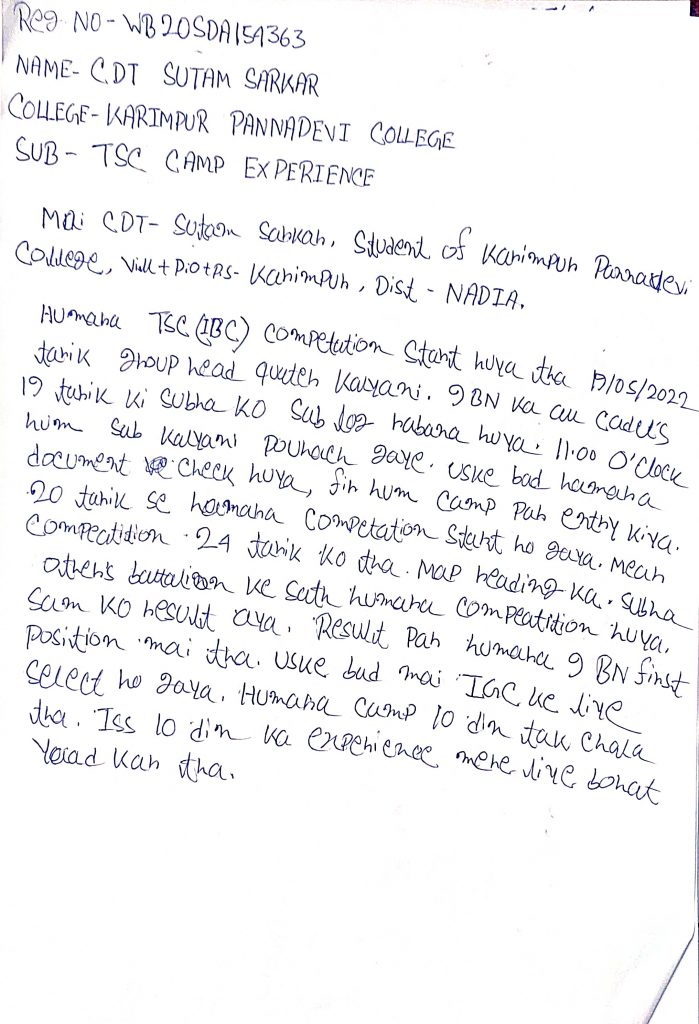 Reg NO - WB20SDA154363
NAME- CDT SUTAM SARKAR
COLLEGE- KARIMPUR PANNADEVI COLLEGE
SUB - TSC CAMP EXPERIENCE
Mai CDT- Sutam Sarkar, Student of Karimpur Pannadevi
College, Vill+P.O+P.S- Karimpur, Dist - NADIA.
Humara TSC (IBC) competation Start huya tha 19/05/2022
tarik group head quater Kalyani. 9 BN ka all Cadets
19 tarik ki subha ko sab log rabana huya. 11.00 O'Clock
hum sab Kalyani pouhach gaye. uske bad hamara
document check huya, fir hum camp par entry kiya.
20 tarik se hamara competation Start ho gaya. Mear
Compeatidion 24 tarik ko tha. Map reading ka. subha
others battalion ke sath humara compeatition huya.
Sam ko result aya. Result par humara 9 BN first
position mai tha. uske bad mai IGC ke liye
select ho gaya. Humara camp 10 din tak chala
tha. Iss 10 din ka experience mere liye bohat
Yaad kar tha.